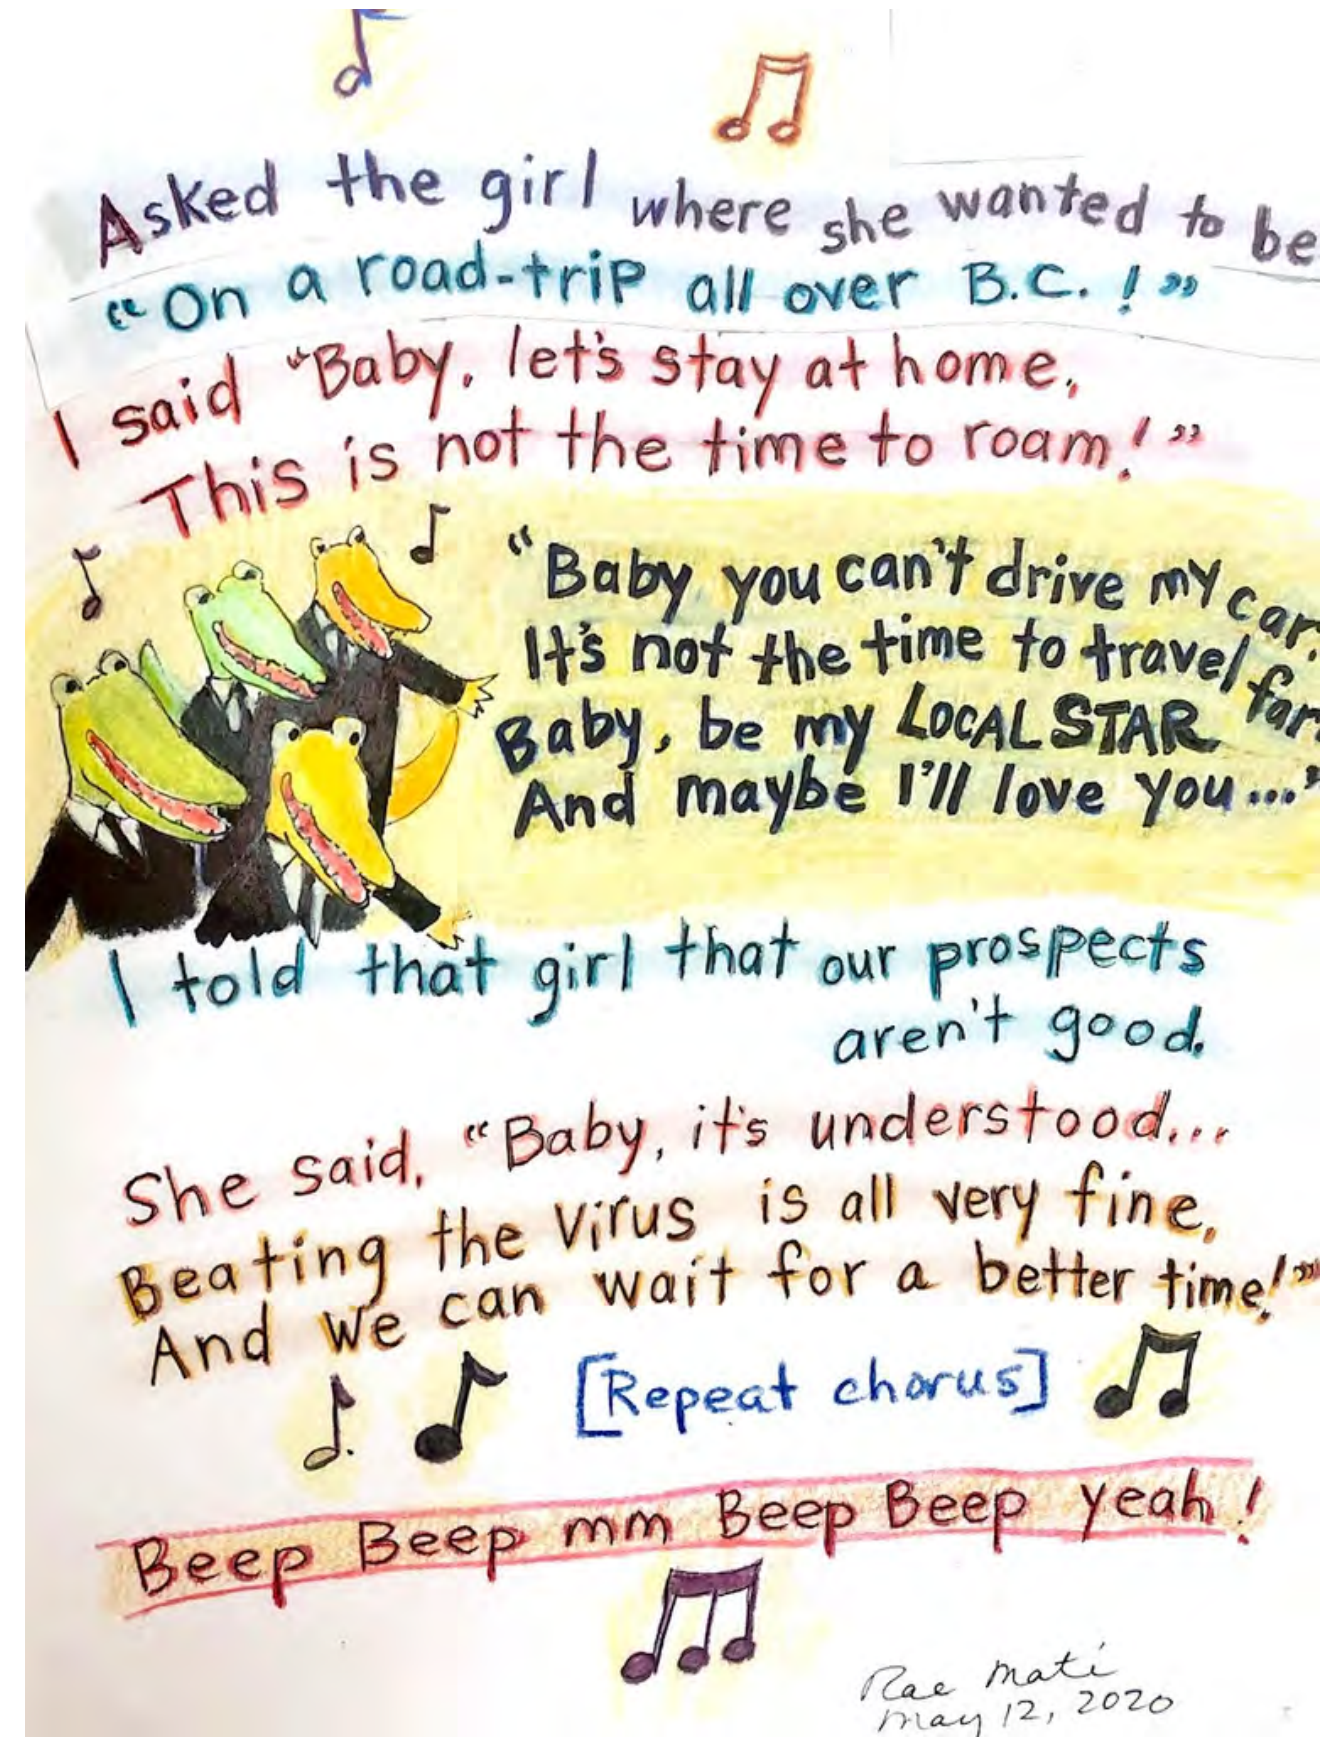 Asked the girl where she wanted to be
"On a road-trip all over B.C.!"
I said "Baby, let's stay at home,
This is not the time to roam!"
"Baby you can't drive my car.
It's not the time to travel far.
Baby, be my LOCAL STAR
And maybe I'll love you..."
I told that girl that our prospects
aren't good.
She said, "Baby, it's understood...
Beating the Virus is all very fine,
And we can wait for a better time!"
[Repeat chorus]
Beep Beep mm Beep Beep yeah!
Rae Maté
May 12, 2020